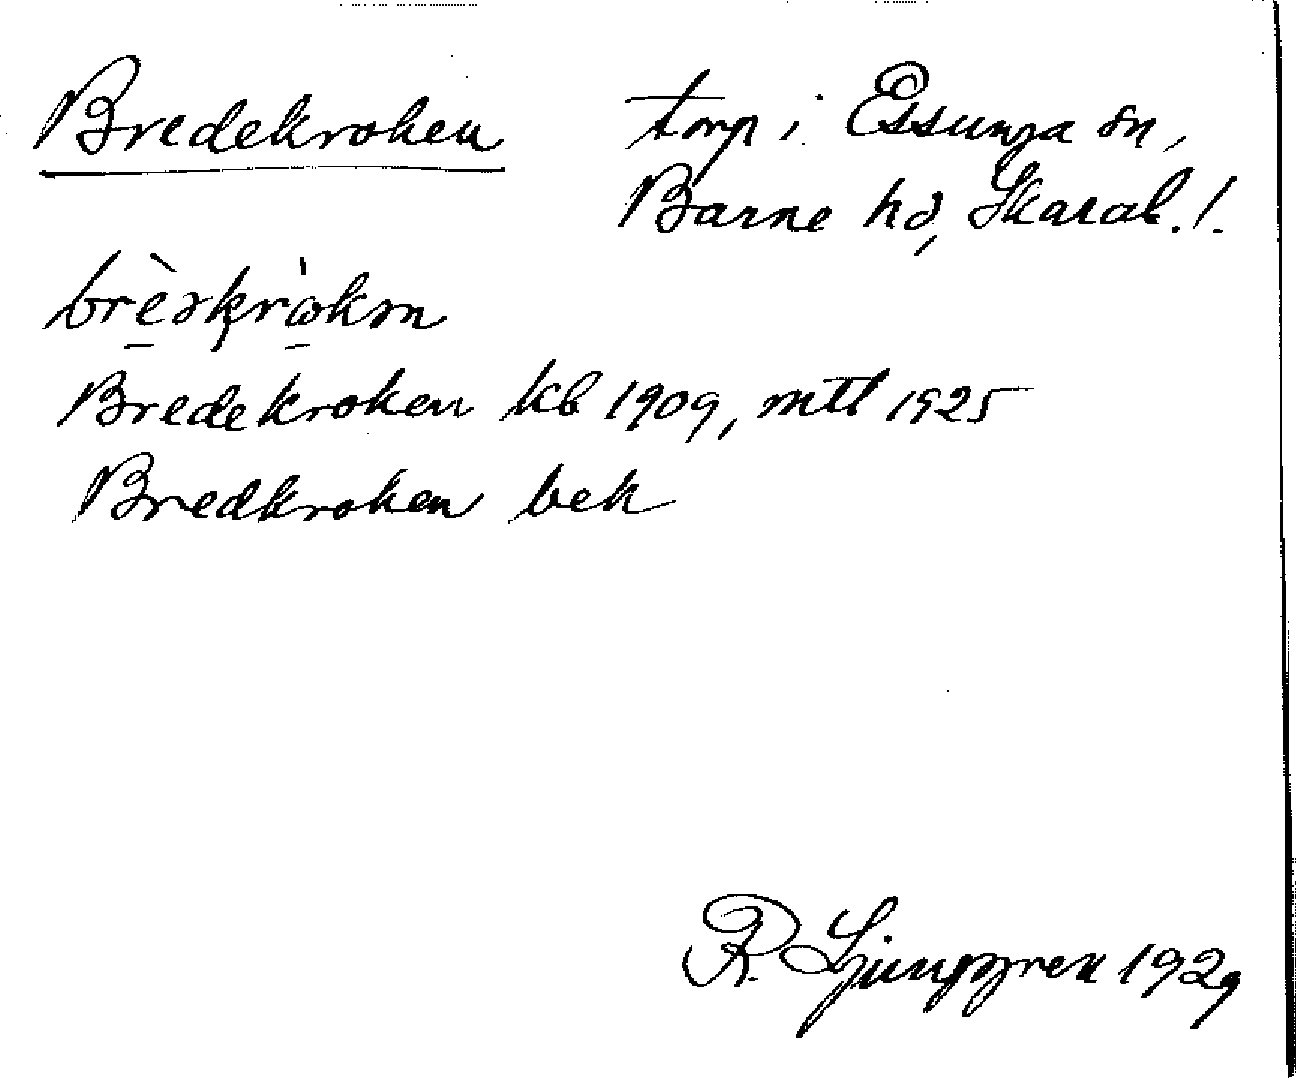 Bredekroken torp i Essunga sn,
Barne hd, Skarab. l.
Bredekroken kb 1909, mtl 1925
Bredkroken bek
R. Ljunggren 1929